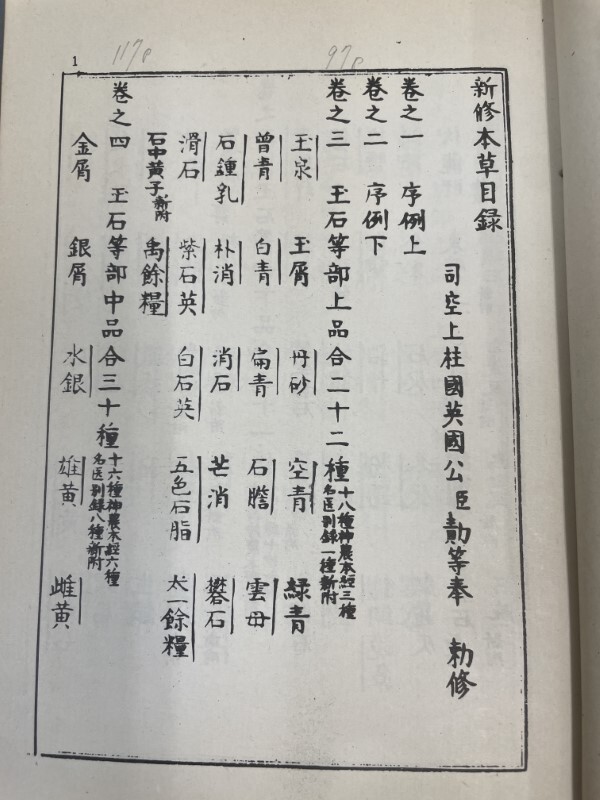 117p
97p
1
新修本草目錄
司空上柱國英國公臣勣等奉 勅修
卷之一 序例上
卷之二 序例下
卷之三 玉石等部上品合二十二種十八種神農本經三種名医别録一種新附
玉泉 玉屑 丹砂 空青 綠青
曾青 白青 扁青 石膽 雲母
石鍾乳 朴消 消石 芒消 礬石
滑石 紫石英 白石英 五色石脂 太一餘糧
石中黄子新附 禹餘糧
卷之四 玉石等部中品合三十種十六種神農本經六種名医别録八種新附
金屑 銀屑 水銀 雄黄 雌黄